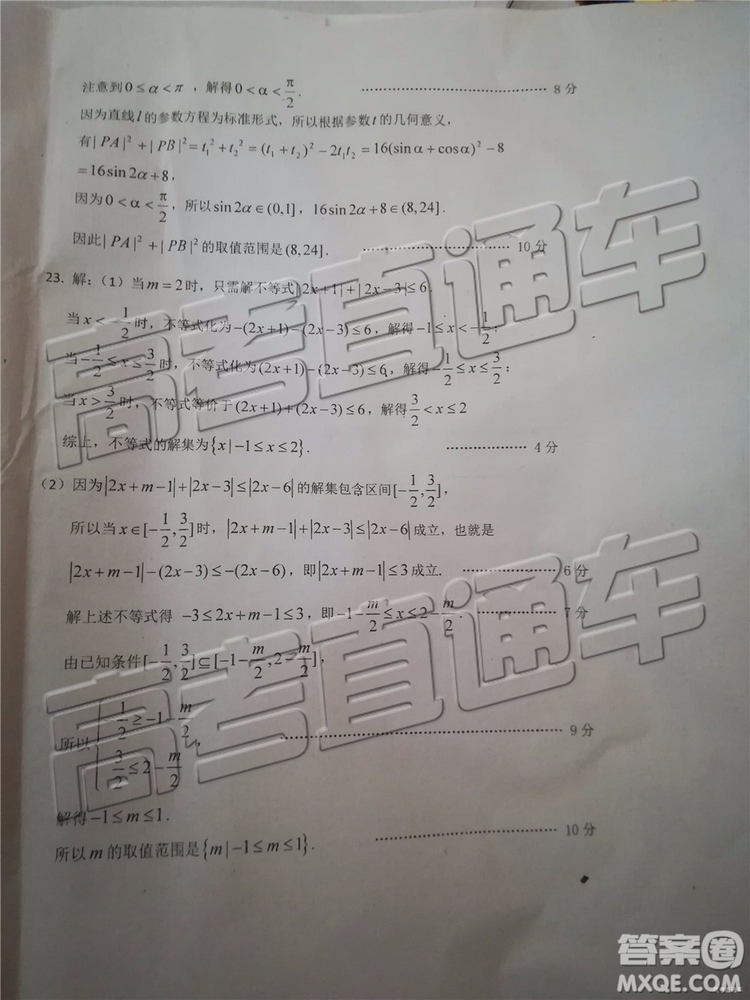 注意到0≤α<π，解得0<α<π/2. ……………………8分
因为直线l的参数方程为标准形式，所以根据参数t的几何意义，
有|PA|²+|PB|²=t₁²+t₂²=(t₁+t₂)²−2t₁t₂=16(sinα+cosα)²−8
=16sin2α+8，
因为0<α<π/2，所以sin2α∈(0,1]，16sin2α+8∈(8,24].
因此|PA|²+|PB|²的取值范围是(8,24]. ……………………10分
23. 解：（1）当m=2时，只需解不等式|2x+1|+|2x−3|≤6.
当x<−1/2时，不等式化为−(2x+1)−(2x−3)≤6，解得−1≤x<−1/2；
当−1/2≤x≤3/2时，不等式化为(2x+1)−(2x−3)≤6，解得−1/2≤x≤3/2；
当x>3/2时，不等式等价于(2x+1)+(2x−3)≤6，解得3/2<x≤2
综上，不等式的解集为{x|−1≤x≤2}. ……………………4分
（2）因为|2x+m−1|+|2x−3|≤|2x−6|的解集包含区间[−1/2,3/2]，
所以当x∈[−1/2,3/2]时，|2x+m−1|+|2x−3|≤|2x−6|成立，也就是
|2x+m−1|−(2x−3)≤−(2x−6)，即|2x+m−1|≤3成立. ……………………6分
解上述不等式得 −3≤2x+m−1≤3，即−1−m/2≤x≤2−m/2. ……………………7分
由已知条件[−1/2,3/2]⊆[−1−m/2,2−m/2]，
所以{−1/2≥−1−m/2, 3/2≤2−m/2 ……………………9分
解得−1≤m≤1.
所以m的取值范围是{m|−1≤m≤1}. ……………………10分
高考直通车
高考直通车
答案圈
MXQE.COM